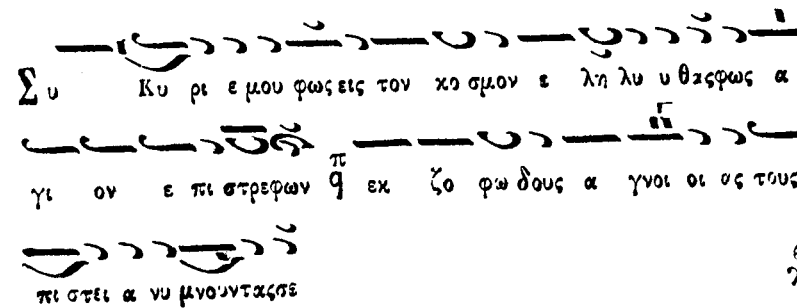 Συ Κυ ρι ε μου φως εις τον κο σμον ε λη λυ υ θας φως α
γι ον ε πι στρεφων π q εκ ζο φω δους α γνοι οι ας τους
πι στει α νυ μνουντας σε